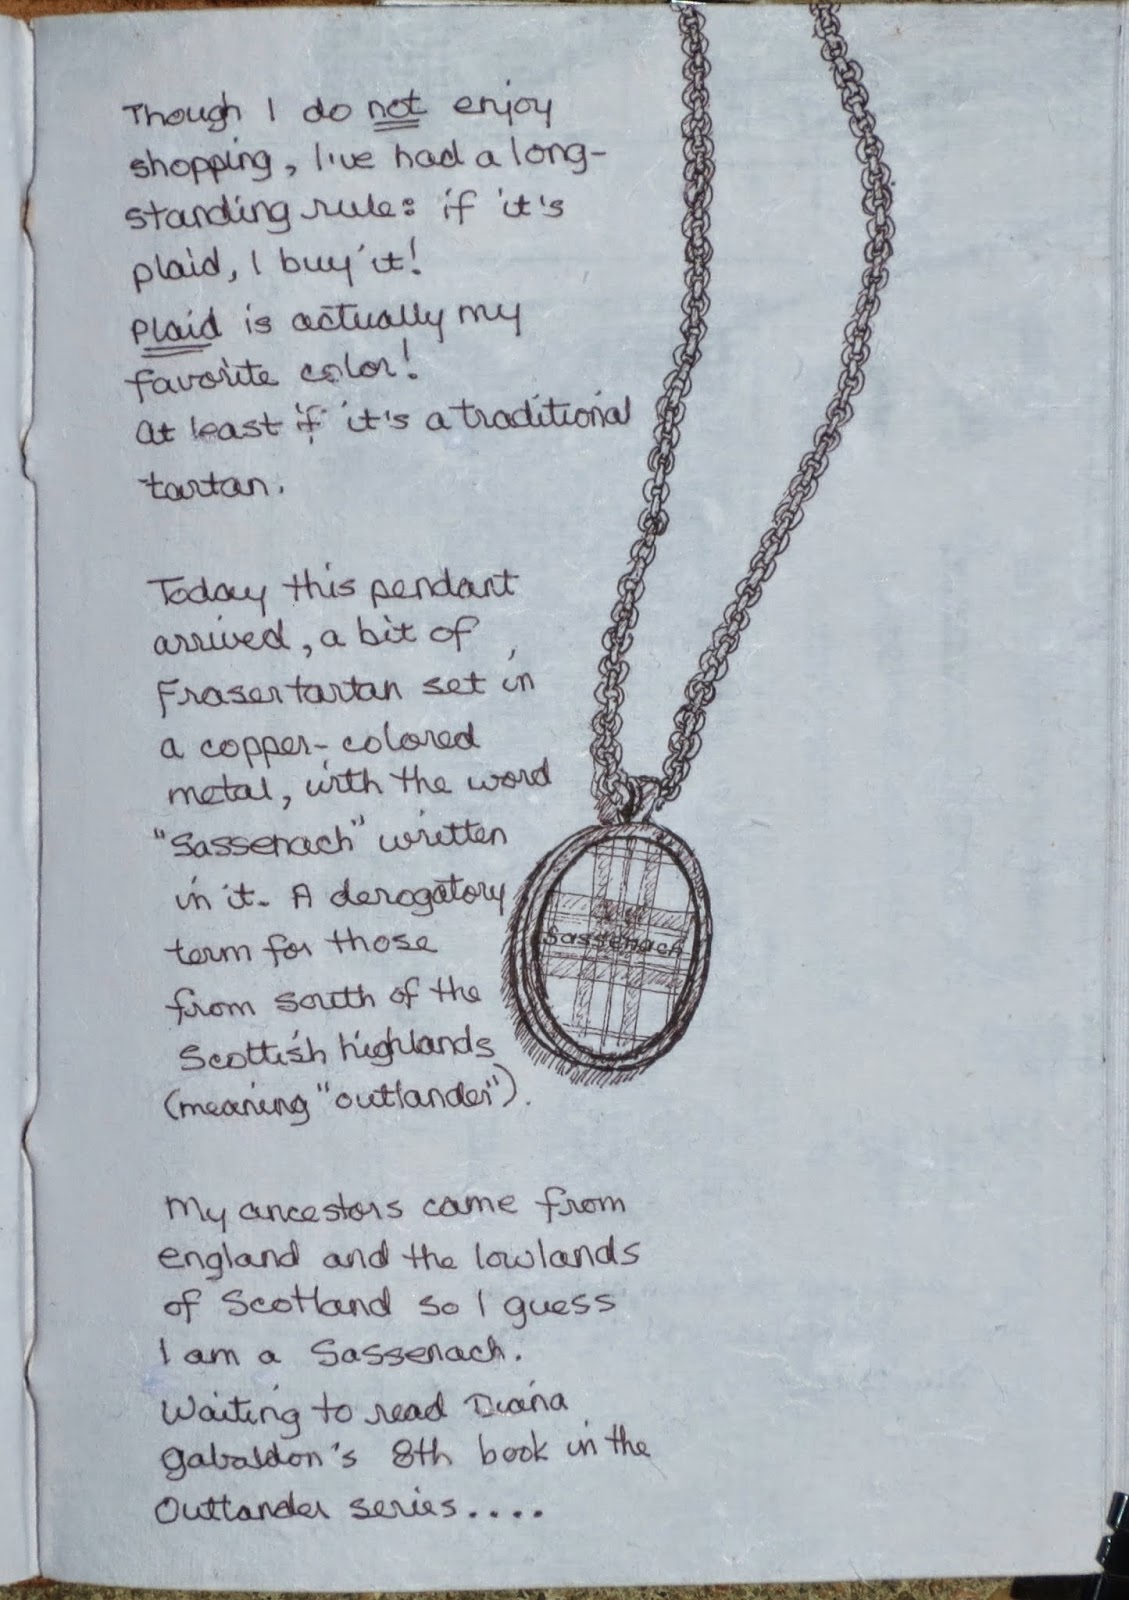 Though I do not enjoy
shopping, I've had a long-
standing rule: if it's
plaid, I buy it!
Plaid is actually my
favorite color!
At least if it's a traditional
tartan.
Today this pendant
arrived, a bit of
Fraser tartan set in
a copper-colored
metal, with the word
"Sassenach" written
in it. A derogatory
term for those
from south of the
Scottish highlands
(meaning "outlander").
Sassenach
My ancestors came from
england and the lowlands
of Scotland so I guess
I am a Sassenach.
Waiting to read Diana
Gabaldon's 8th book in the
Outlander series....